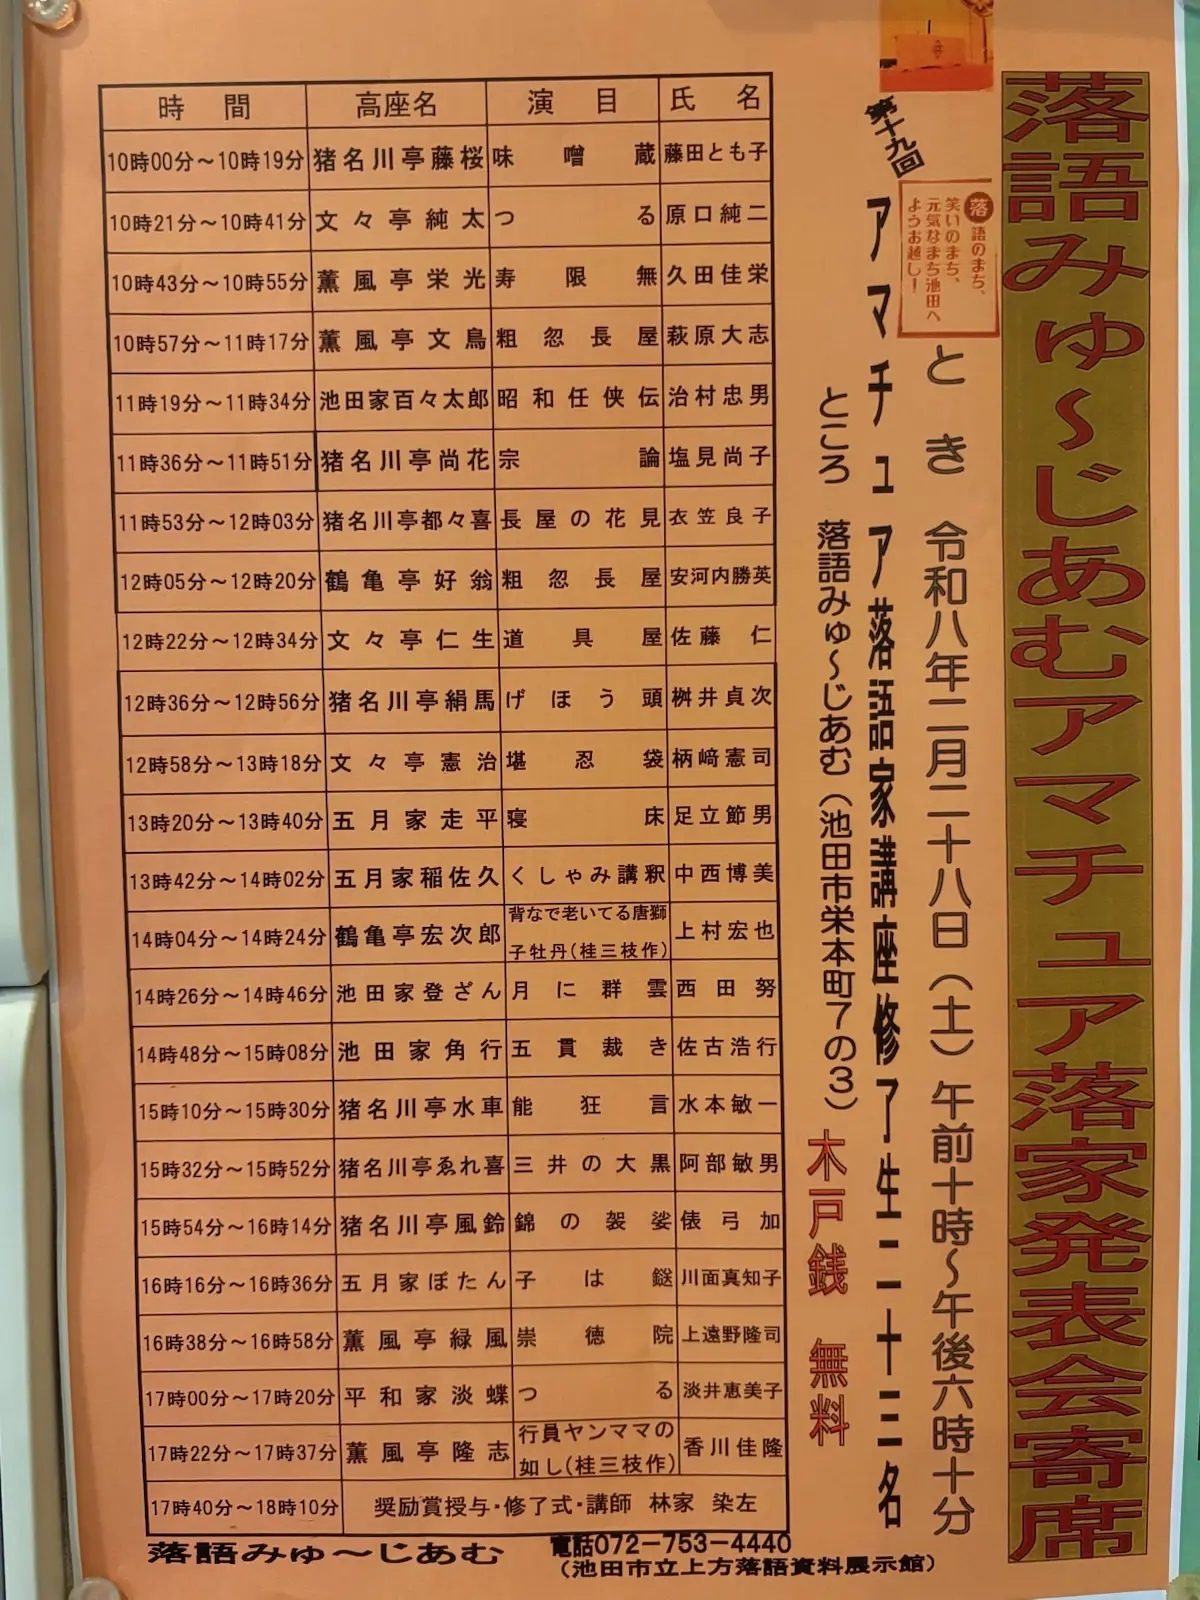 落語みゅ～じあむアマチュア落家発表会寄席
落語のまち、
笑いのまち、
元気なまち池田へ
ようお越し！
とき 令和八年二月二十八日（土）午前十時～午後六時十分
第十九回
アマチュア落語家講座修了生二十三名
ところ 落語みゅ～じあむ（池田市栄本町7の3）
木戸銭 無料
時間 高座名 演目 氏名
10時00分～10時19分 猪名川亭藤桜 味噌蔵 藤田とも子
10時21分～10時41分 文々亭純太 つる 原口純二
10時43分～10時55分 薫風亭栄光 寿限無 久田佳栄
10時57分～11時17分 薫風亭文鳥 粗忽長屋 萩原大志
11時19分～11時34分 池田家百々太郎 昭和任侠伝 治村忠男
11時36分～11時51分 猪名川亭尚花 宗論 塩見尚子
11時53分～12時03分 猪名川亭都々喜 長屋の花見 衣笠良子
12時05分～12時20分 鶴亀亭好翁 粗忽長屋 安河内勝英
12時22分～12時34分 文々亭仁生 道具屋 佐藤仁
12時36分～12時56分 猪名川亭絹馬 げほう頭 桝井貞次
12時58分～13時18分 文々亭憲治 堪忍袋 柄﨑憲司
13時20分～13時40分 五月家走平 寝床 足立節男
13時42分～14時02分 五月家稲佐久 くしゃみ講釈 中西博美
14時04分～14時24分 鶴亀亭宏次郎 背なで老いてる唐獅子牡丹(桂三枝作) 上村宏也
14時26分～14時46分 池田家登ざん 月に群雲 西田努
14時48分～15時08分 池田家角行 五貫裁き 佐古浩行
15時10分～15時30分 猪名川亭水車 能狂言 水本敏一
15時32分～15時52分 猪名川亭ゑれ喜 三井の大黒 阿部敏男
15時54分～16時14分 猪名川亭風鈴 錦の袈裟 俵弓加
16時16分～16時36分 五月家ぼたん 子は鎹 川面真知子
16時38分～16時58分 薫風亭緑風 崇徳院 上遠野隆司
17時00分～17時20分 平和家淡蝶 つる 淡井恵美子
17時22分～17時37分 薫風亭隆志 行員ヤンママの如し(桂三枝作) 香川佳隆
17時40分～18時10分 奨励賞授与・修了式・講師 林家 染左
落語みゅ～じあむ 電話072－753－4440
（池田市立上方落語資料展示館）